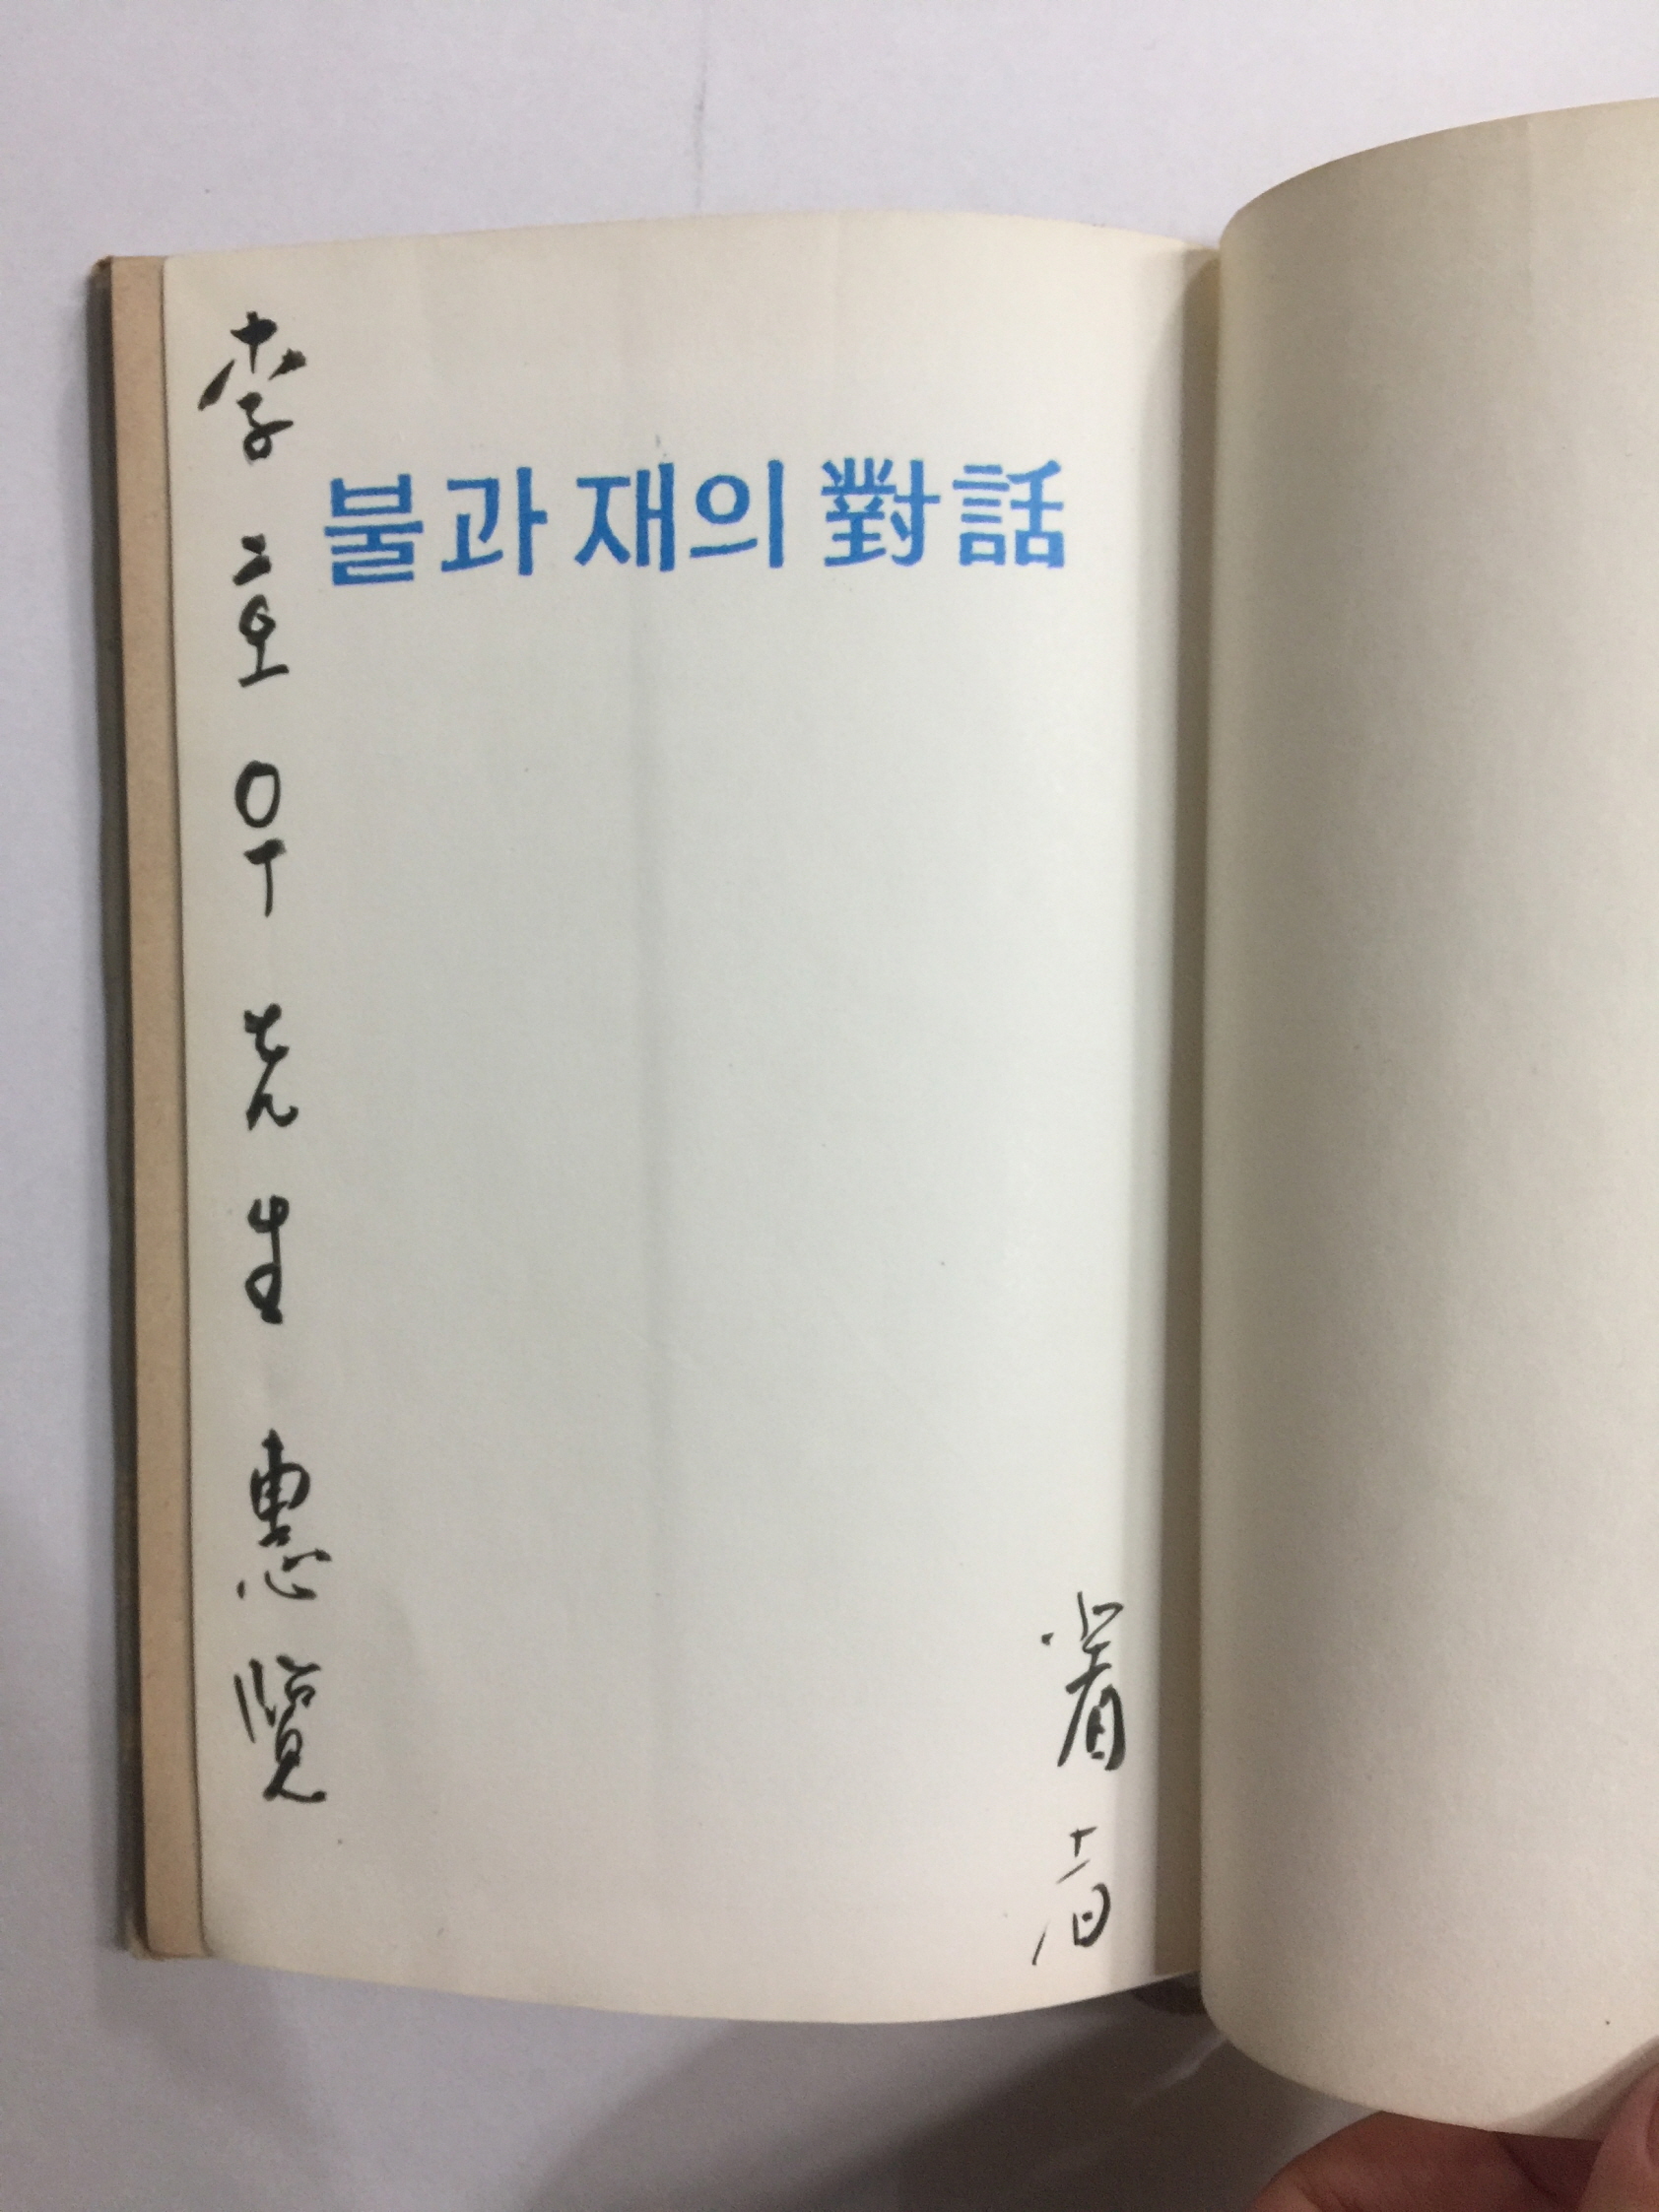 불과 재의 對話
李호우先生惠覽
著者